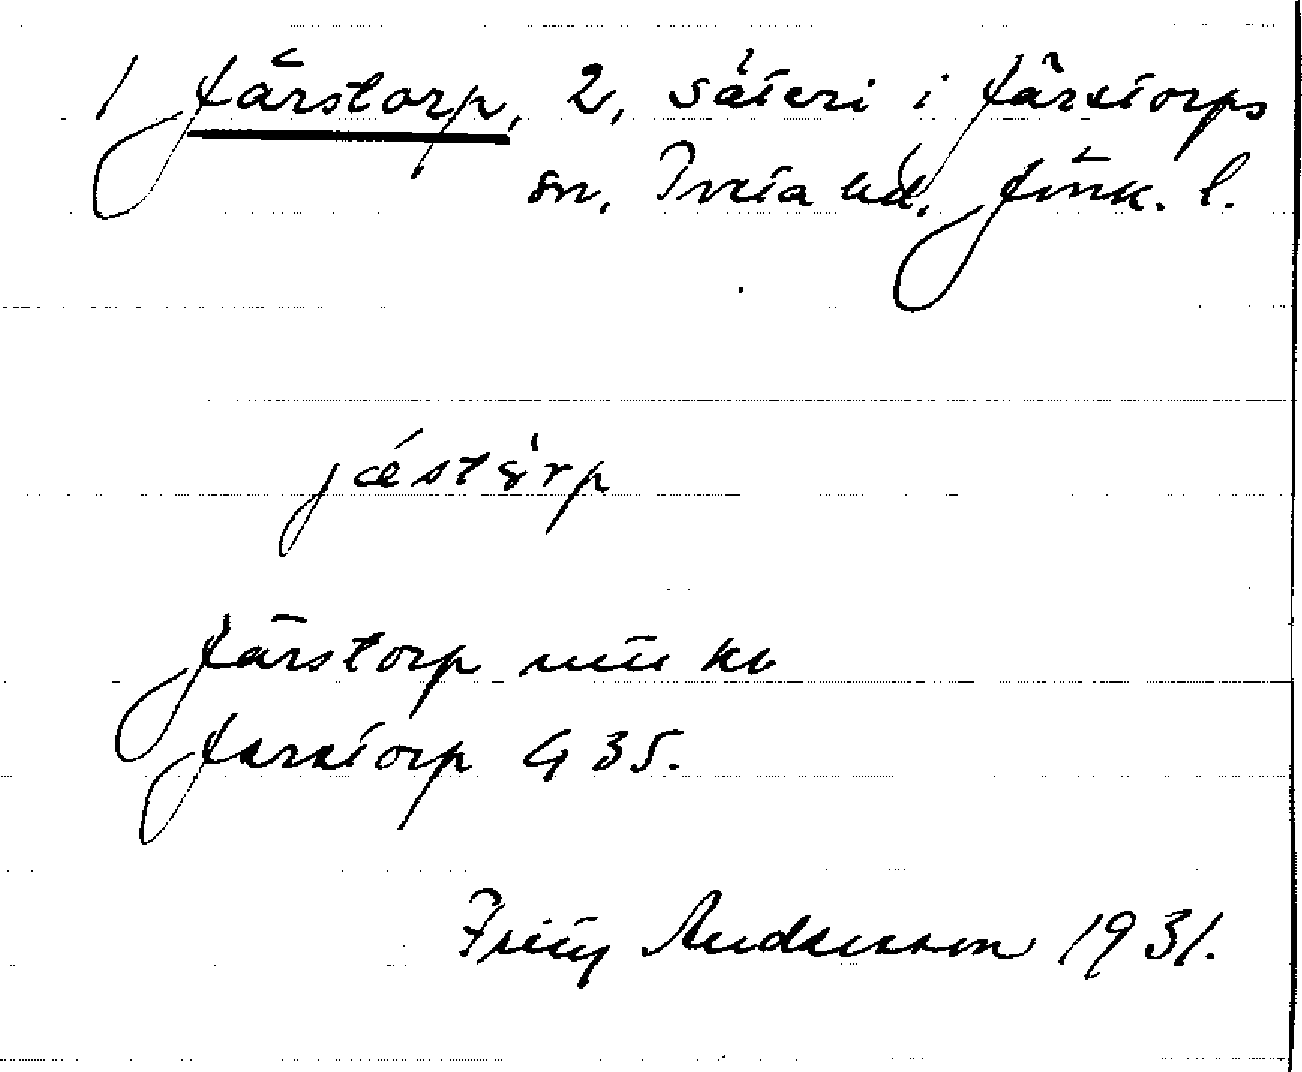 1 Järstorp, 2, säteri i Järstorps
sn, Tveta hd, Jönk. l.
jǽstərp
Järstorp
Järstorp G 35.
Fritz Andersson 1931.